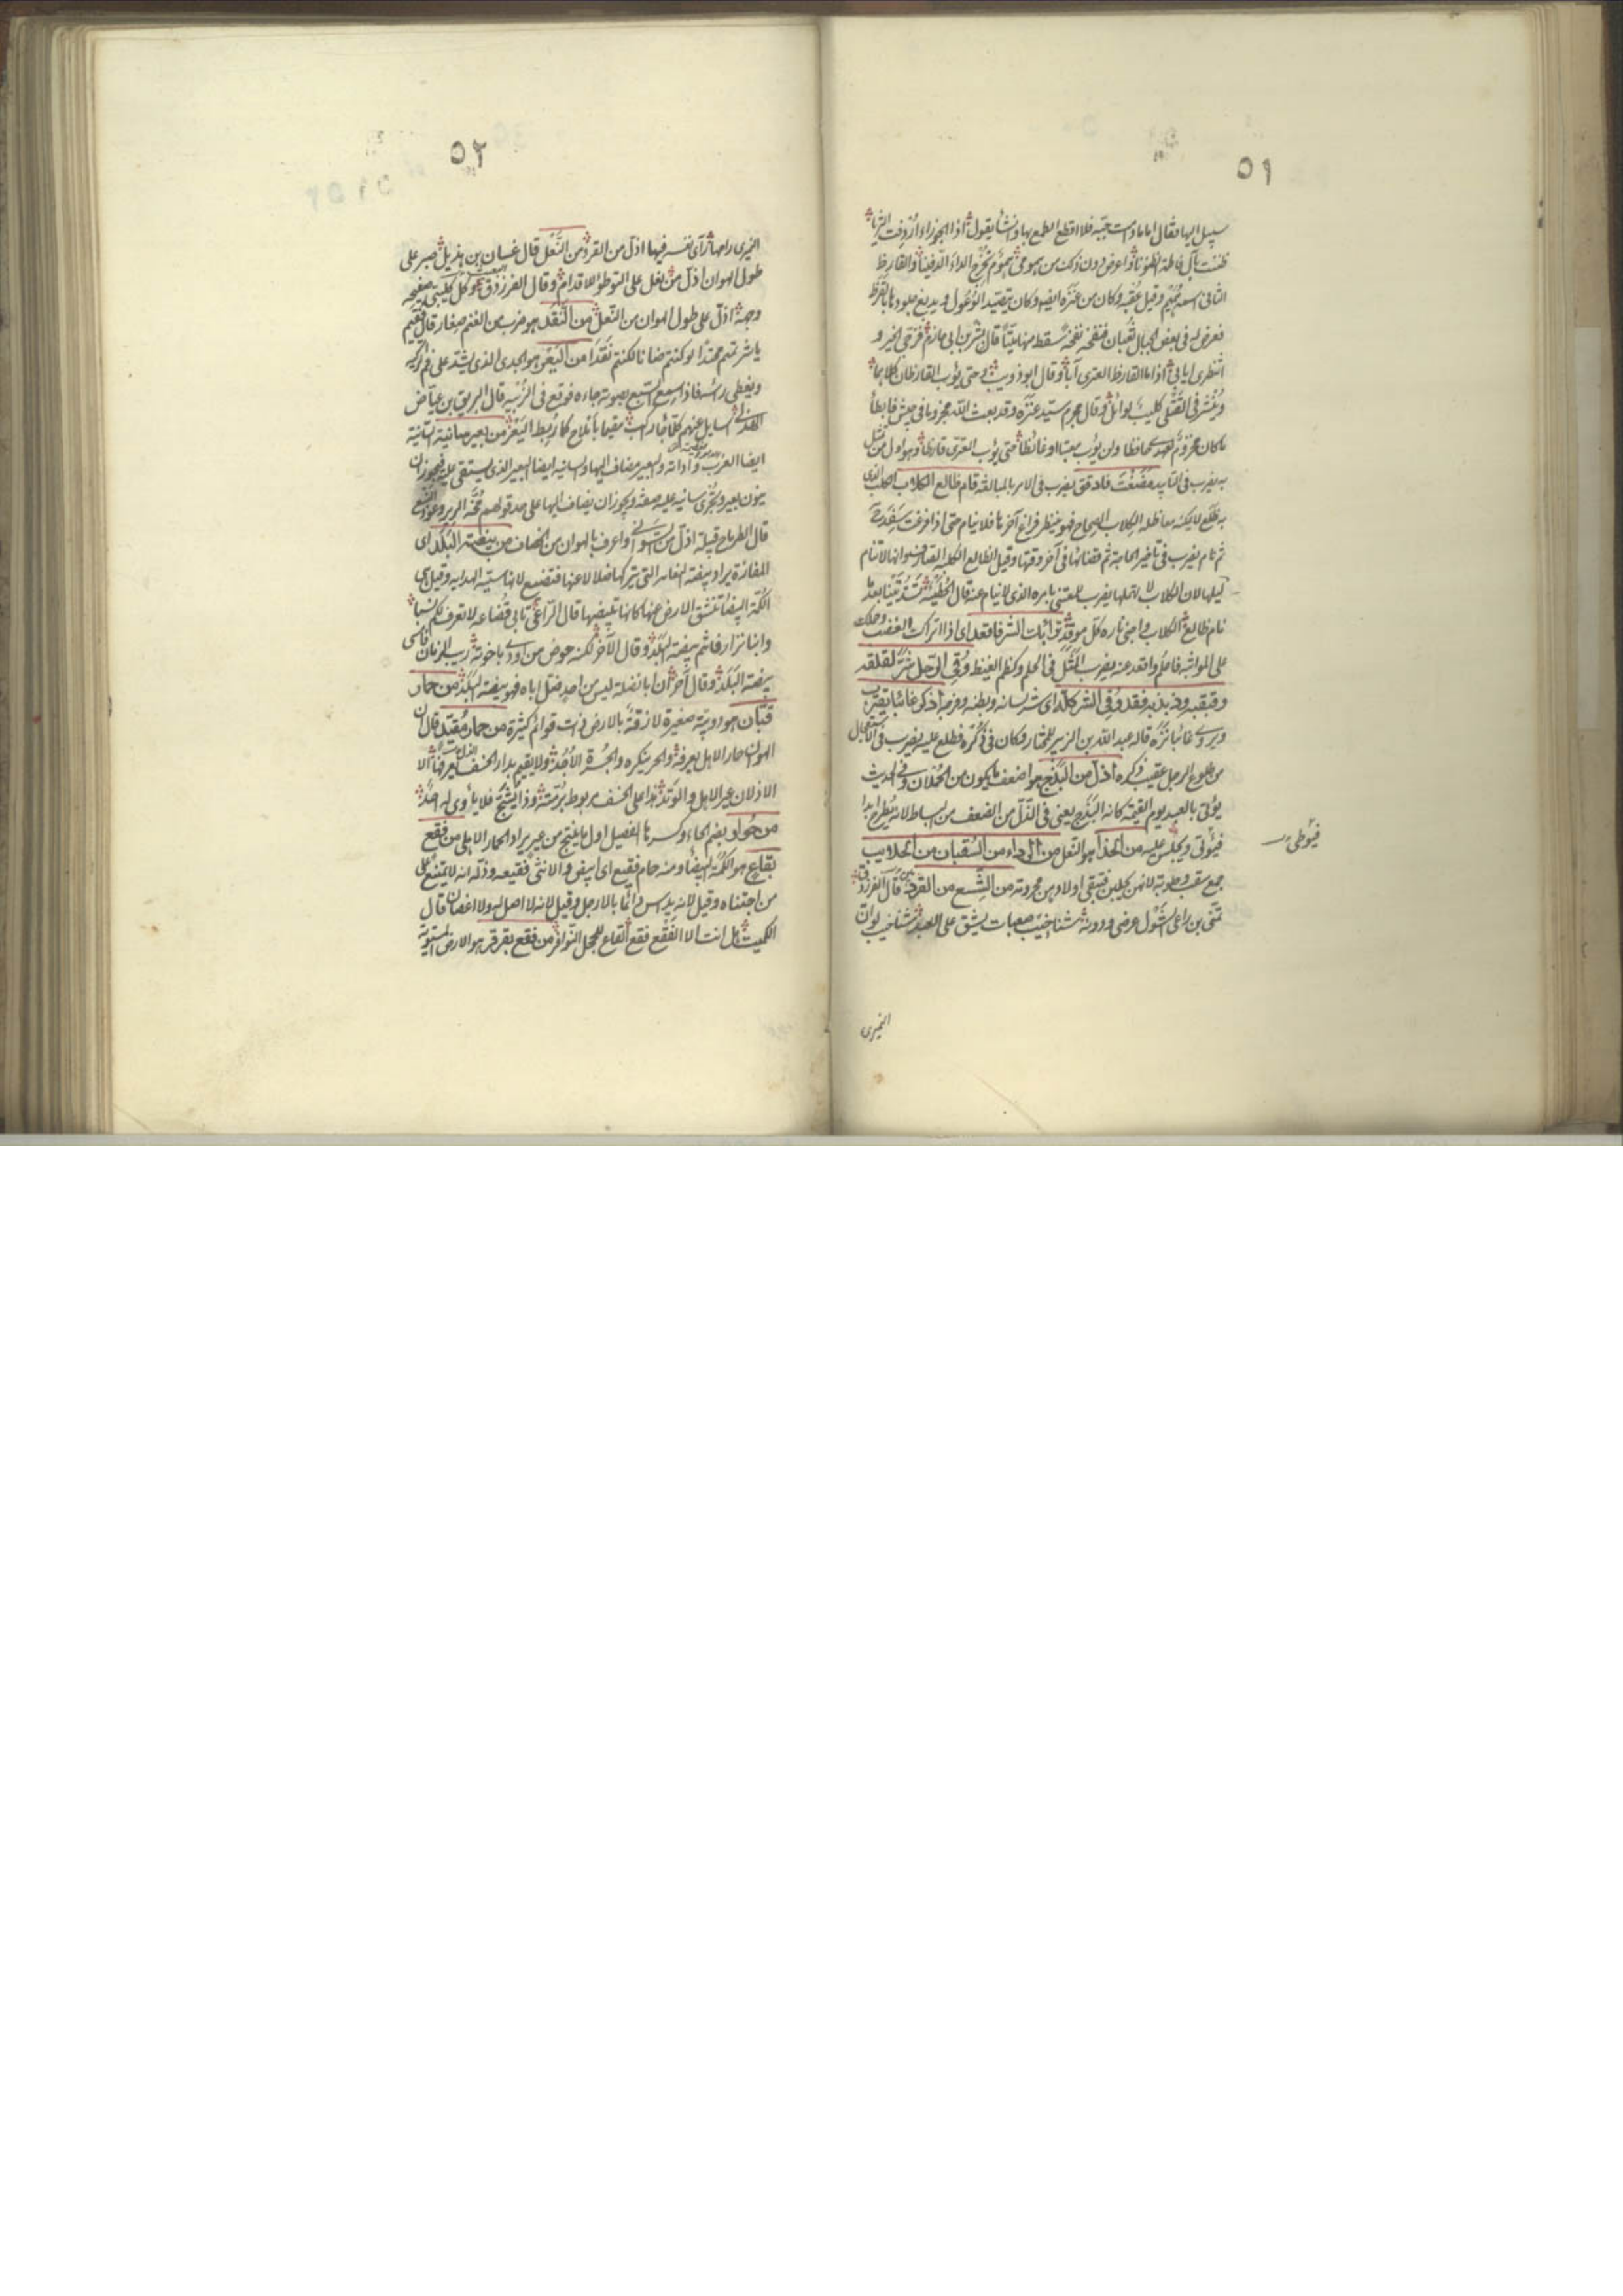 ٥١
سبيل اليها فقال اما ما دمت حية فلا اقطع الطمع بها وانشأ يقول اذا الجوزاء اردفت الثريا
ظننت بآل فاطمة الظنونا واعرض دون ذلك من همومي هموم تخرج الداء الدفينا والقارظ
الثاني اسمه هميم وقيل عقبة وكان من عنزة ايضا وكان يتصيد الوعول ويدبغ جلودها بالقرظ
فعرض له في بعض الجبال ثعبان فنفخه نفخة سقط منها ميتا قال بشر بن ابي خازم فرجي الخير و
انتظري ايابي اذا ما القارظ العنزي آبا وقال ابو ذويب وحتى يؤب القارظان كلاهما
وينشر في القتلى كليب لوائل وقال سيد عنزة وقد بعث الله في جيش فابطأ
ما كان لعهدك حافظا ولن يؤب حتى يؤب العنزي قارظا وهو اول من
به يضرب في التأبيد يضرب في الامر بالمبالغة قام ظالع الكلاب الكلب الذي
به ظلع لا يمكنه معاظلة الكلاب الصحاح فهو ينتظر فراغ آخرها فلا ينام حتى اذا فرغت سفد
ثم نام يضرب في تأخير الحاجة ثم قضائها في آخر وقتها وقيل الظالع الكلبة الصارف لانها لا تنام
ليلها لان الكلاب لا تمهلها يضرب للمعتني بامره الذي لا ينام عنه قال الحطيئة بعد ما
نام ظالع الكلاب واخبى ناره كل موقد الشر فاقعد اي اذا
على المواثبة فاحلم واقعد عنه يضرب المثل في الحلم وكظم الغيظ وقي الرجل شر لقلقه
وقبقبه وذبذبه فقد وقي الشر كله اي شر لسانه وبطنه وفرجه اذكر غائبا يقترب
ويروى غائبا تره قاله عبد الله بن الزبير للمختار وكان في ذكره فطلع عليه يضرب في
من طلوع الرجل عقيب ذكره اذل من البذج هو اضعف ما يكون من الحملان وفي الحديث
يؤتى بالعبد يوم القيمة كانه البذج يعني في الذل من الضعف من البساط لانه يطرح ابدا
فيؤتى ويجلس عليه من الحذاء هو النعل من الرداء من السقبان من الحلايب
فيوطى
جمع سقب وحلوبة لانهن فتبقى اولادهن من الشسع من القردان قال الفرزدق
تمنى بن راعي الشول عرضي ودونه شناخيب صعبات يشق على العبد شناخيب لو ان
النميري
٥٢
النميري رامها رأى نفسه فيها اذل من القرد من النعل قال غسان بن هذيل صبر على
طول الهوان اذل من نعل على التوطؤ للاقدام وقال الفرزدق وكل كليبي صفيحة
وجهه اذل على طول الهوان من النعل من النقد هو ضرب من الغنم صغار قال
يا شر تميم محتدا لو كنتم ضانا لكنتم نقدا من اليعر هو الجدي الذي يشد على فم الزبية
ويغطى راسه فاذا سمع السبع صوته جاءه فوقع في الزبية قال البريق بن عياض
الهذلي اسايل عنهم كلما جاء راكب مقيما باملاح كما ربط اليعر من بعير سانية السانية
ايضا الغرب واداته والبعير مضاف اليها والسانية ايضا البعير الذي يستقى عليه فيجوز ان
ينون بعير ويجرى سانية عليه صفة ويجوز ان يضاف اليها على حد قولهم
قال الطرماح قبيلة اذل من السواني واعرف بالهوان من الخصاف من بيضة البلد اي
المفازة يراد بيضة النعامة التي تتركها ضلالا عنها فتضيع لانها وقيل هي
الكمأة البيضاء تنشق الارض عنها كانها تبيضها قال الراعي تأبى قضاعة لا تعرف لكم نسبا
وابنا نزار فانتم بيضة البلد وقال الآخر لكنه حوض من اودى باخوته ريب الزمان فامسى
بيضة البلد وقال آخر ان ابا نضلة ليس من احد ضل اباه فهو بيضة البلد من حمار
قبان هو دويبة صغيرة لازقة بالارض ذات قوائم كثيرة من حمار مقيد قال ان
الهوان حمار الاهل يعرفه والحر ينكره والجسرة الاجد ولا يقيم بدار يعرفها الا
الاذلان عير الاهل والوتد هذا على الخسف مربوط برمته وذا يشج فلا يأوي له احد
من حوار بضم الحاء وكسرها الفصيل اول ما ينتج من عير يراد الحمار الاهلي من فقع
بقاع هو الكمأة البيضاء ومنه حمام فقيع اي ابيض والانثى فقيعة وذله انه لا يمتنع على
من اجتناه وقيل لانه يداس دائما بالارجل وقيل لانه لا اصل له ولا اغصان قال
الكميت هل انت الا الفقع فقع القاع للحجل النوافر من فقع بقرقر هو الارض المستوية